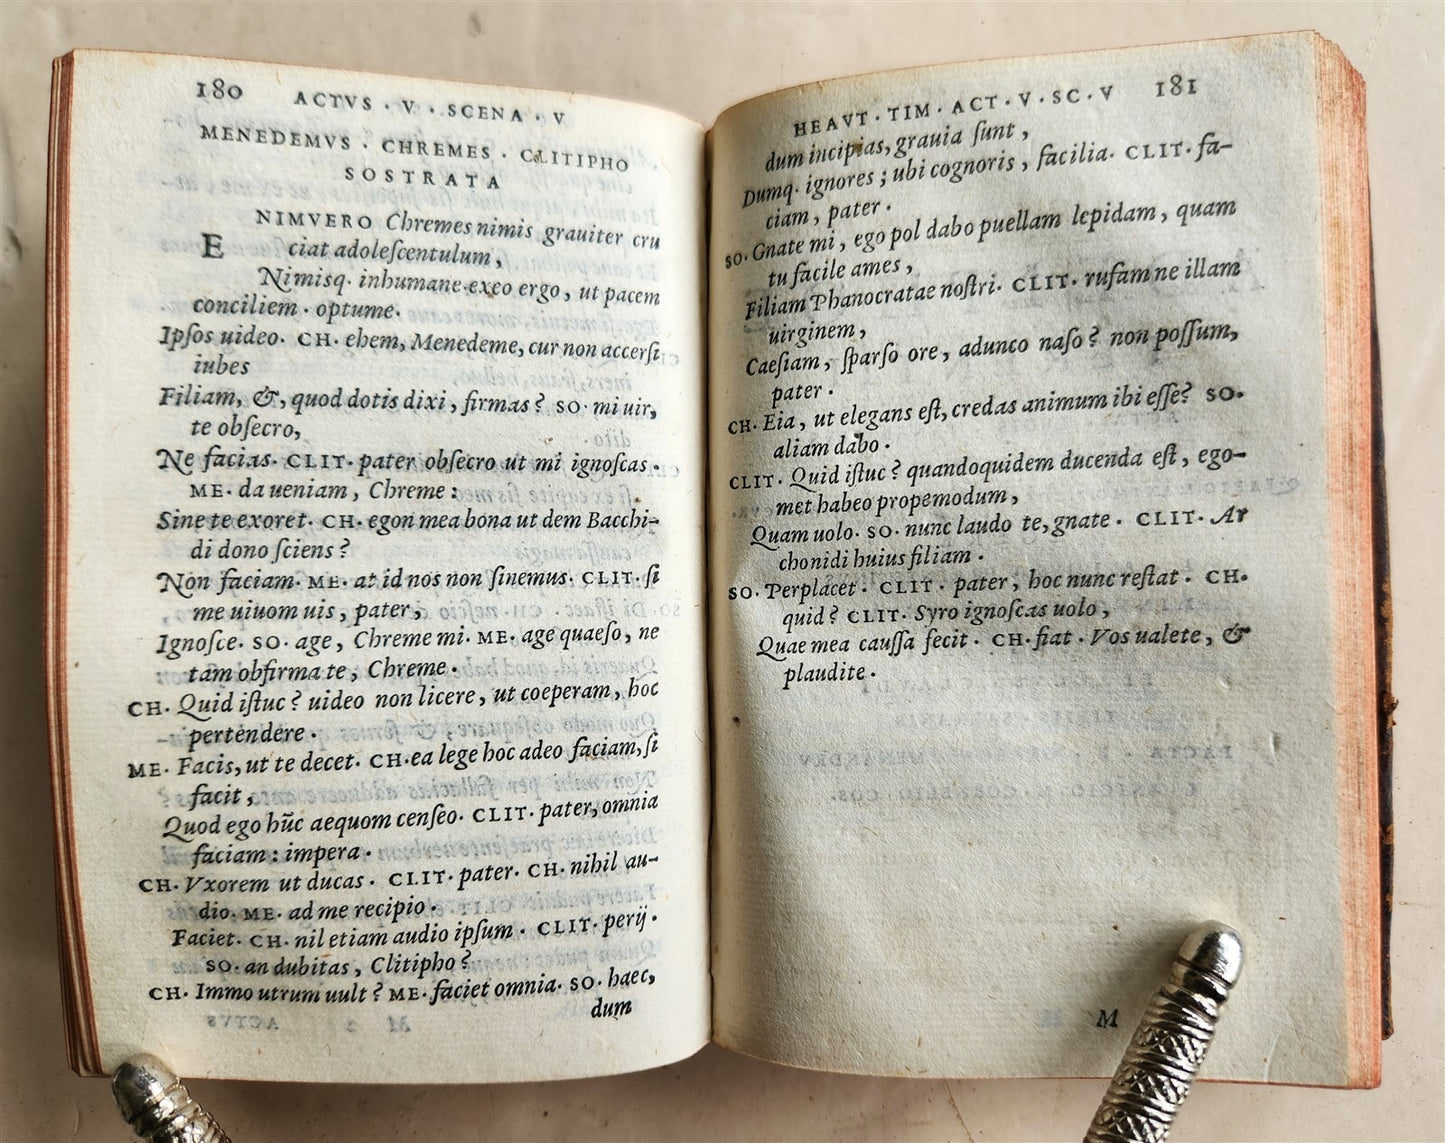 180 ACTVS · V · SCENA · V
MENEDEMVS · CHREMES · CLITIPHO
SOSTRATA
E NIMVERO Chremes nimis grauiter cru
ciat adoleſcentulum,
Nimisq. inhumane.exeo ergo, ut pacem
conciliem · optume.
Ipſos uideo. CH. ehem, Menedeme, cur non accerſi
iubes
Filiam, &, quod dotis dixi, firmas? SO· mi uir,
te obſecro,
Ne facias. CLIT. pater obſecro ut mi ignoſcas.
ME. da ueniam, Chreme:
Sine te exoret. CH. egon mea bona ut dem Bacchi-
di dono ſciens?
Non faciam. ME. at id nos non ſinemus. CLIT. ſi
me uiuom uis, pater,
Ignoſce. SO. age, Chreme mi. ME. age quaeſo, ne
tam obfirma te, Chreme.
CH. Quid iſtuc? uideo non licere, ut coeperam, hoc
pertendere.
ME. Facis, ut te decet. CH. ea lege hoc adeo faciam, ſi
facit,
Quod ego hūc aequom cenſeo. CLIT. pater, omnia
faciam: impera.
CH. Vxorem ut ducas. CLIT. pater. CH. nihil au-
dio. ME. ad me recipio.
Faciet. CH. nil etiam audio ipſum. CLIT. perij.
SO. an dubitas, Clitipho?
CH. Immo utrum uult? ME. faciet omnia. SO. haec,
dum
HEAVT · TIM · ACT · V · SC · V 181
dum incipias, grauia ſunt,
Dumq. ignores; ubi cognoris, facilia. CLIT. fa-
ciam, pater.
SO. Gnate mi, ego pol dabo puellam lepidam, quam
tu facile ames,
Filiam Phanocratae noſtri. CLIT. rufam ne illam
uirginem,
Caeſiam, ſparſo ore, adunco naſo? non poſſum,
pater.
CH. Eia, ut elegans eſt, credas animum ibi eſſe? SO.
aliam dabo.
CLIT. Quid iſtuc? quandoquidem ducenda eſt, ego-
met habeo propemodum,
Quam uolo. SO. nunc laudo te, gnate. CLIT. Ar
chonidi huius filiam.
SO. Perplacet. CLIT. pater, hoc nunc reſtat. CH.
quid? CLIT. Syro ignoſcas uolo,
Quae mea cauſſa fecit. CH. fiat. Vos ualete, &
plaudite.
M